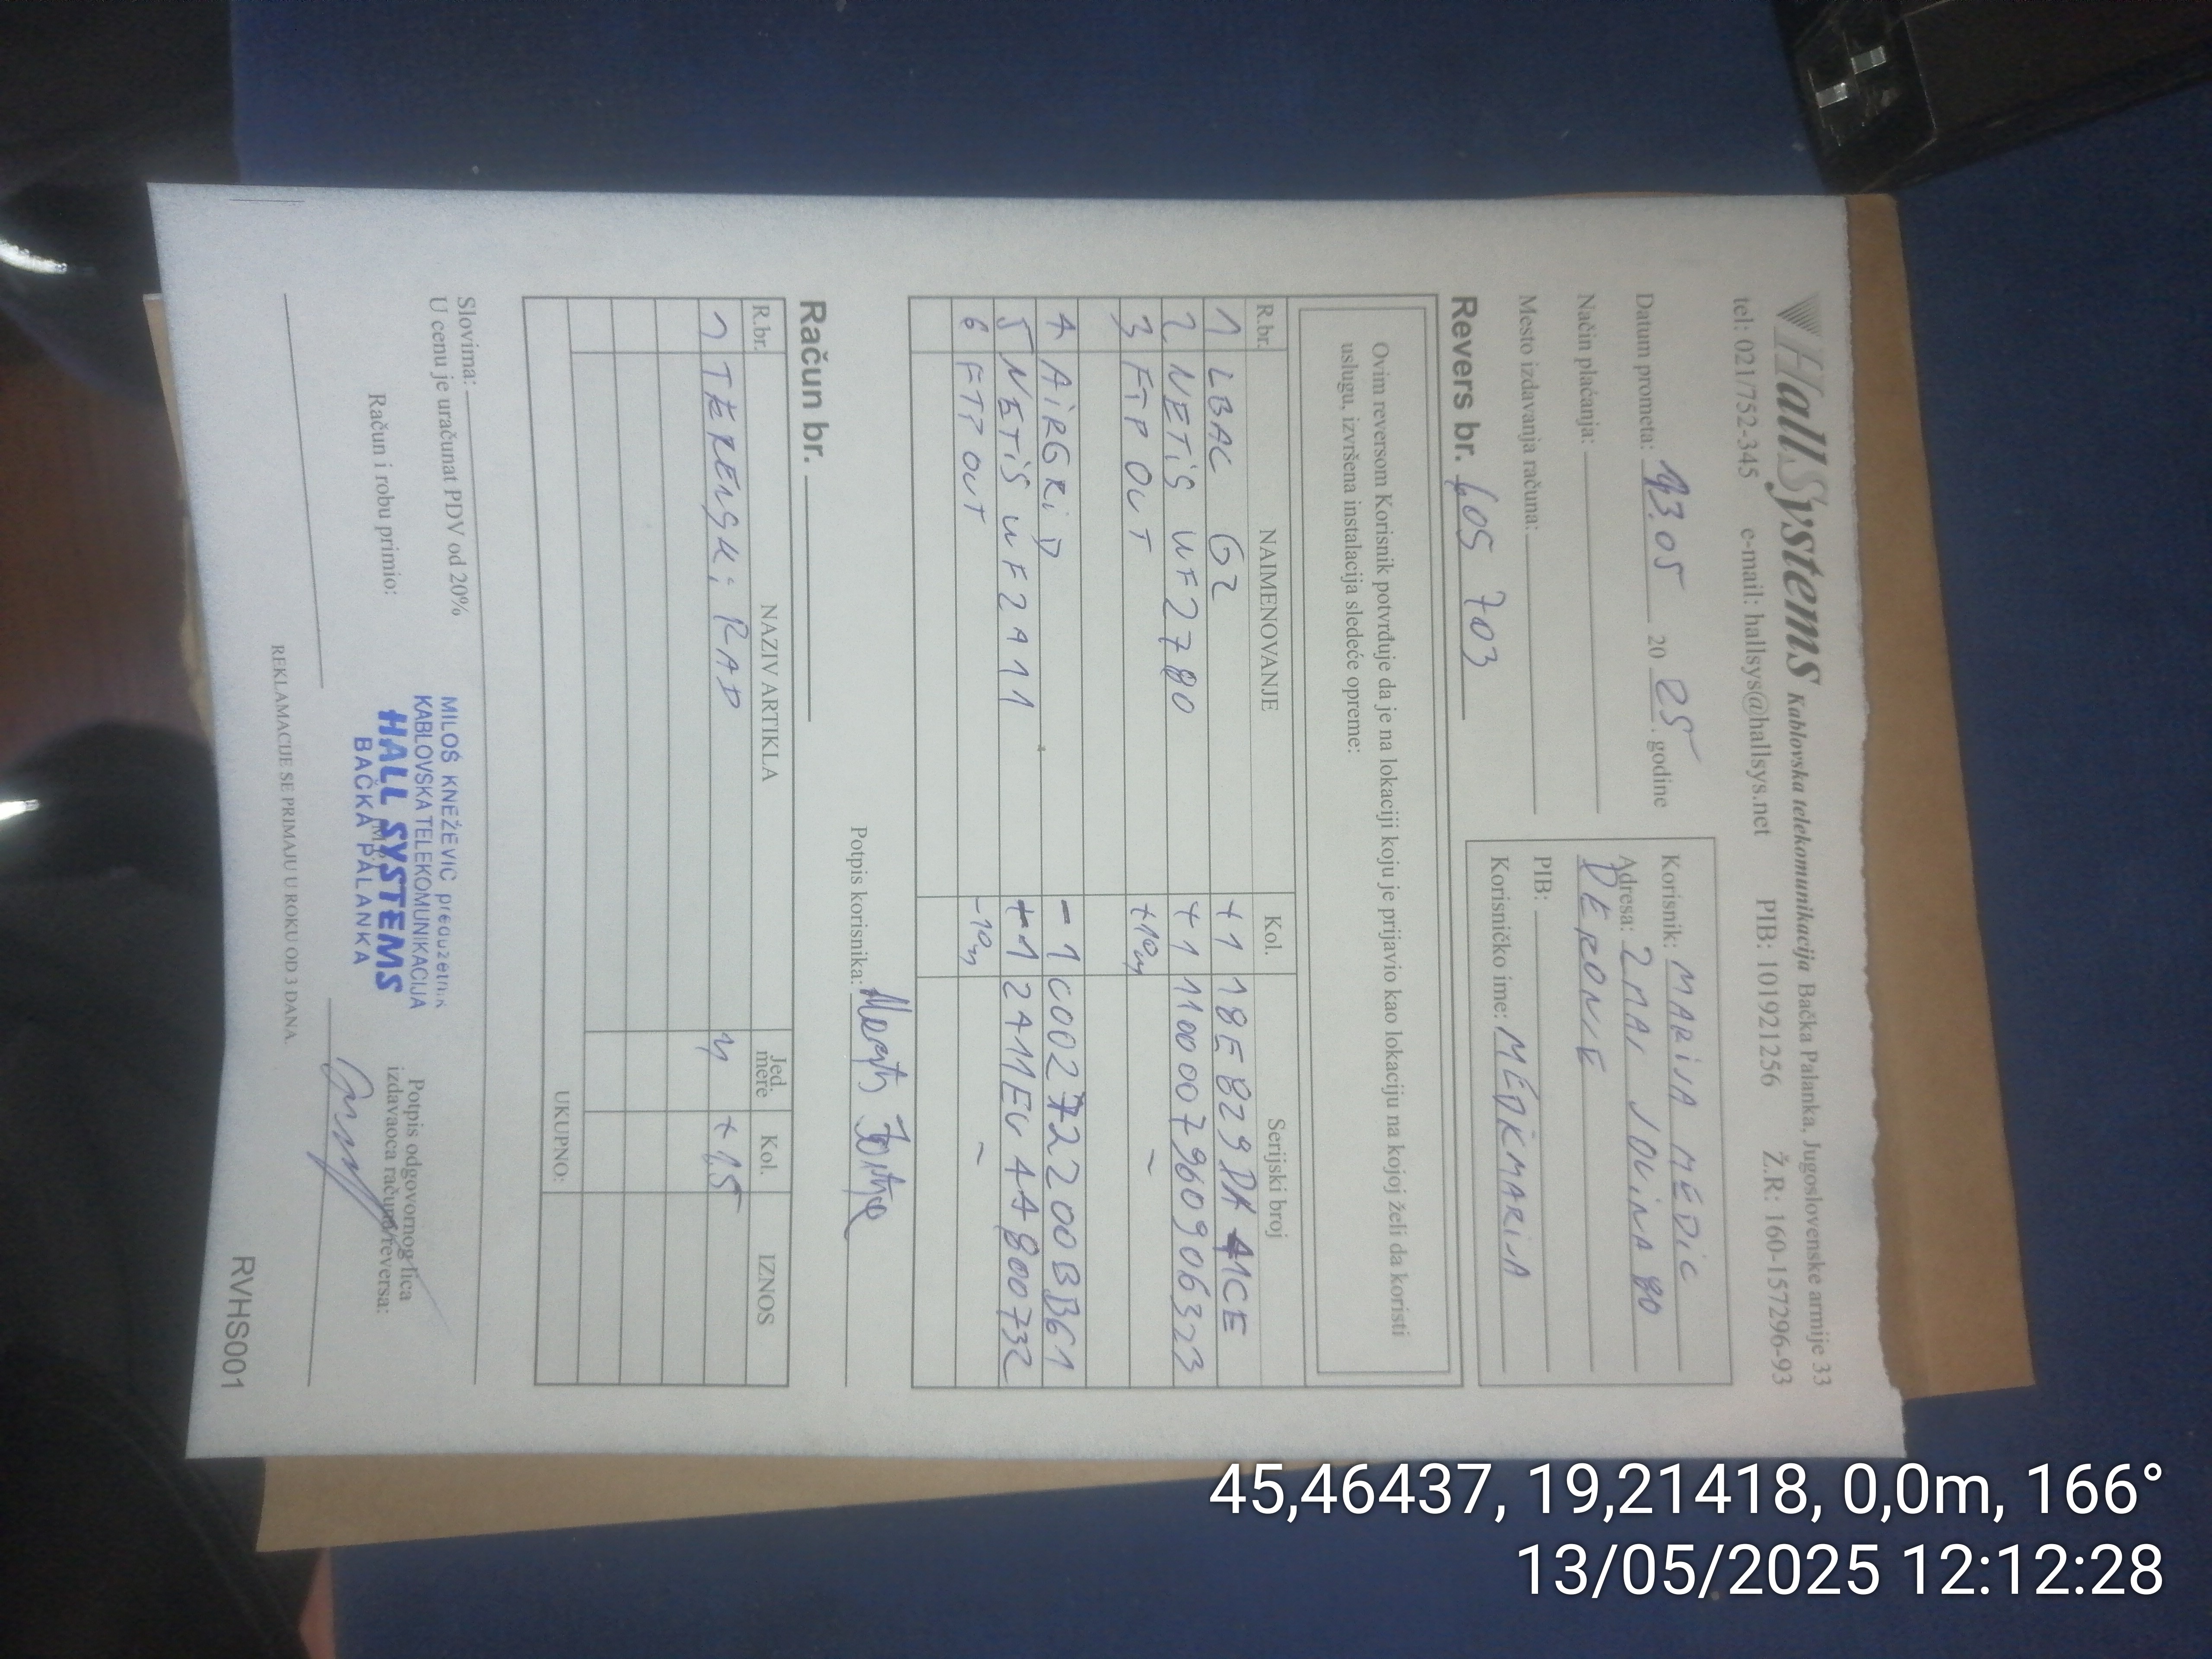 HallSystems Kablovska telekomunikacija Bačka Palanka, Jugoslovenske armije 33
tel: 021/752-345 e-mail: hallsys@hallsys.net PIB: 101921256 Ž.R: 160-157296-93
Datum prometa: 13.05 20 25. godine
Način plaćanja:
Mesto izdavanja računa:
Korisnik: MARIJA MEDIĆ
Adresa: 2 MAJ JOVINA 80
DERONJE
PIB:
Korisničko ime: MEDKMARIJA
Revers br. 605 703
Ovim reversom Korisnik potvrđuje da je na lokaciji koju je prijavio kao lokaciju na kojoj želi da koristi
uslugu, izvršena instalacija sledeće opreme:
R.br. NAIMENOVANJE Kol. Serijski broj
1 LBAC G2 +1 18E829DA 41CE
2 NETIS WF2780 +1 1100007960906323
3 FTP OUT +10m –
4 AIRGRID -1 C00272200BB61
5 NETIS WF2411 +1 2411EU4A800732
6 FTP OUT -10m –
Potpis korisnika:
Račun br.
R.br. NAZIV ARTIKLA Jed. mere Kol. IZNOS
1 TERENSKI RAD h +1,5
UKUPNO:
Slovima:
U cenu je uračunat PDV od 20%
Račun i robu primio:
MILOŠ KNEŽEVIĆ preduzetnik
KABLOVSKA TELEKOMUNIKACIJA
HALL SYSTEMS
BAČKA PALANKA
Potpis odgovornog lica
izdavaoca računa/reversa:
REKLAMACIJE SE PRIMAJU U ROKU OD 3 DANA.
RVHS001
45,46437, 19,21418, 0,0m, 166°
13/05/2025 12:12:28